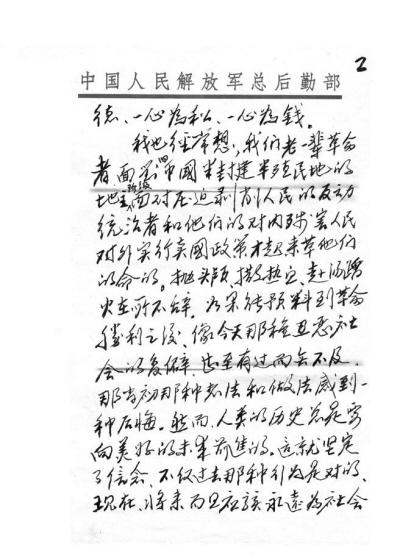 2
中国人民解放军总后勤部
德、一心为私、一心为钱。
我也经常想，我们老一辈革命
者面对旧中国半封建半殖民地的
面对压迫剥削人民的反动
统治者和他们的对内残害人民
对外实行卖国政策才起来革他们
的命的。抛头颅、撒热血、赴汤蹈
火在所不辞。如果能预料到革命
胜利之后，像今天那种丑恶社
会的复僻，甚至有过而无不及，
那当初那种想法和做法感到一
种后悔。然而，人类的历史总是要
向美好的未来前进的。这就坚定
了信念，不仅过去那种行为是对的，
现在、将来而且应该永远为社会